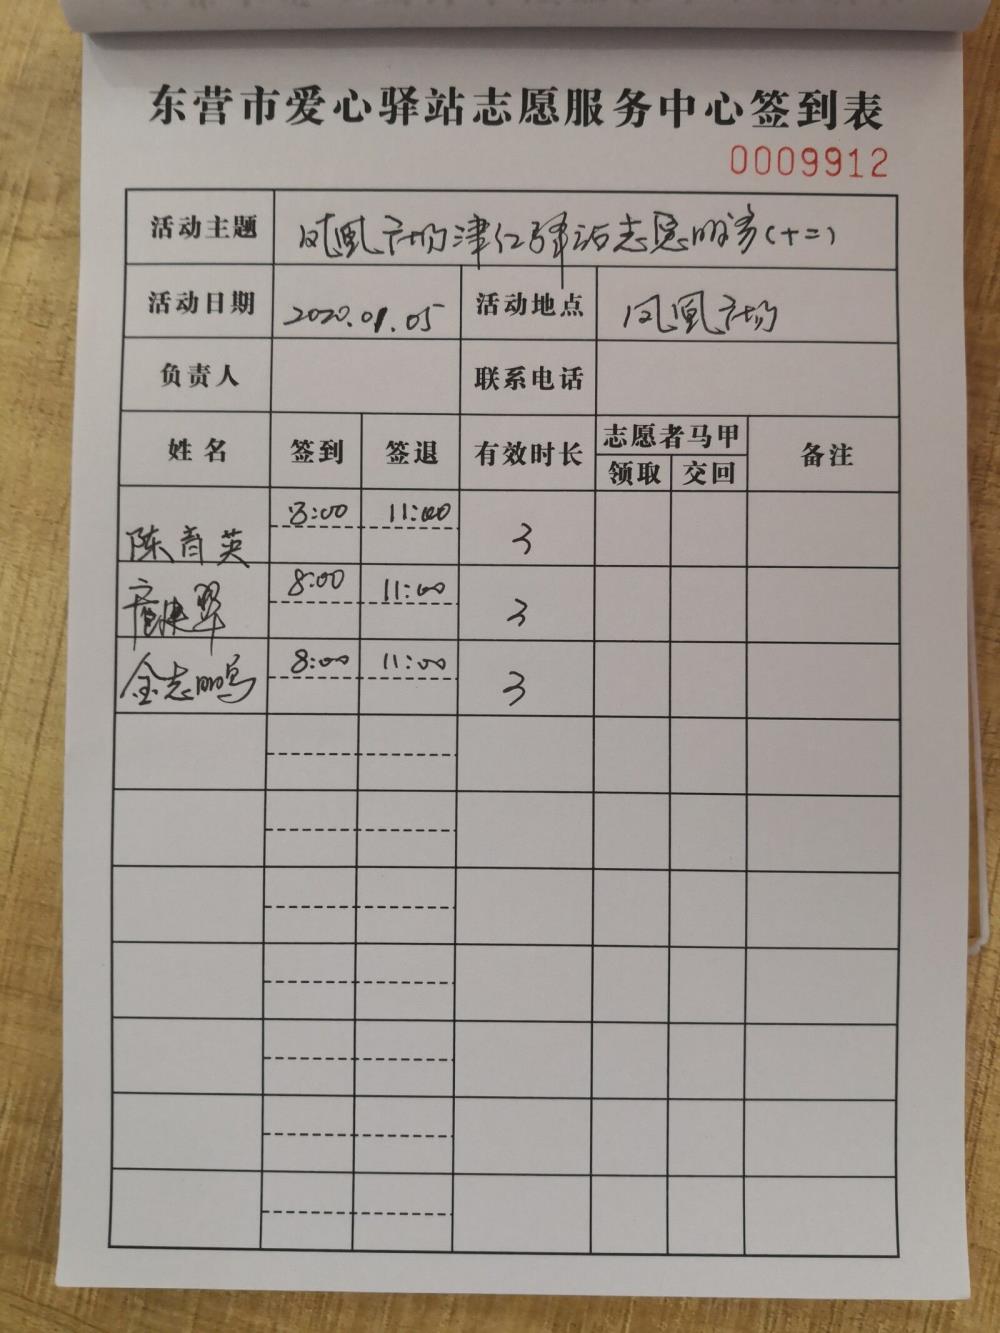 东营市爱心驿站志愿服务中心签到表
0009912
活动主题 凤凰广场津仁驿站志愿服务(十二)
活动日期 2020.01.05 活动地点 凤凰广场
负责人 联系电话
姓名 签到 签退 有效时长 志愿者马甲 备注
领取 交回
陈青英 8:00 11:00 3
8:00 11:00 3
金志鹏 8:00 11:00 3